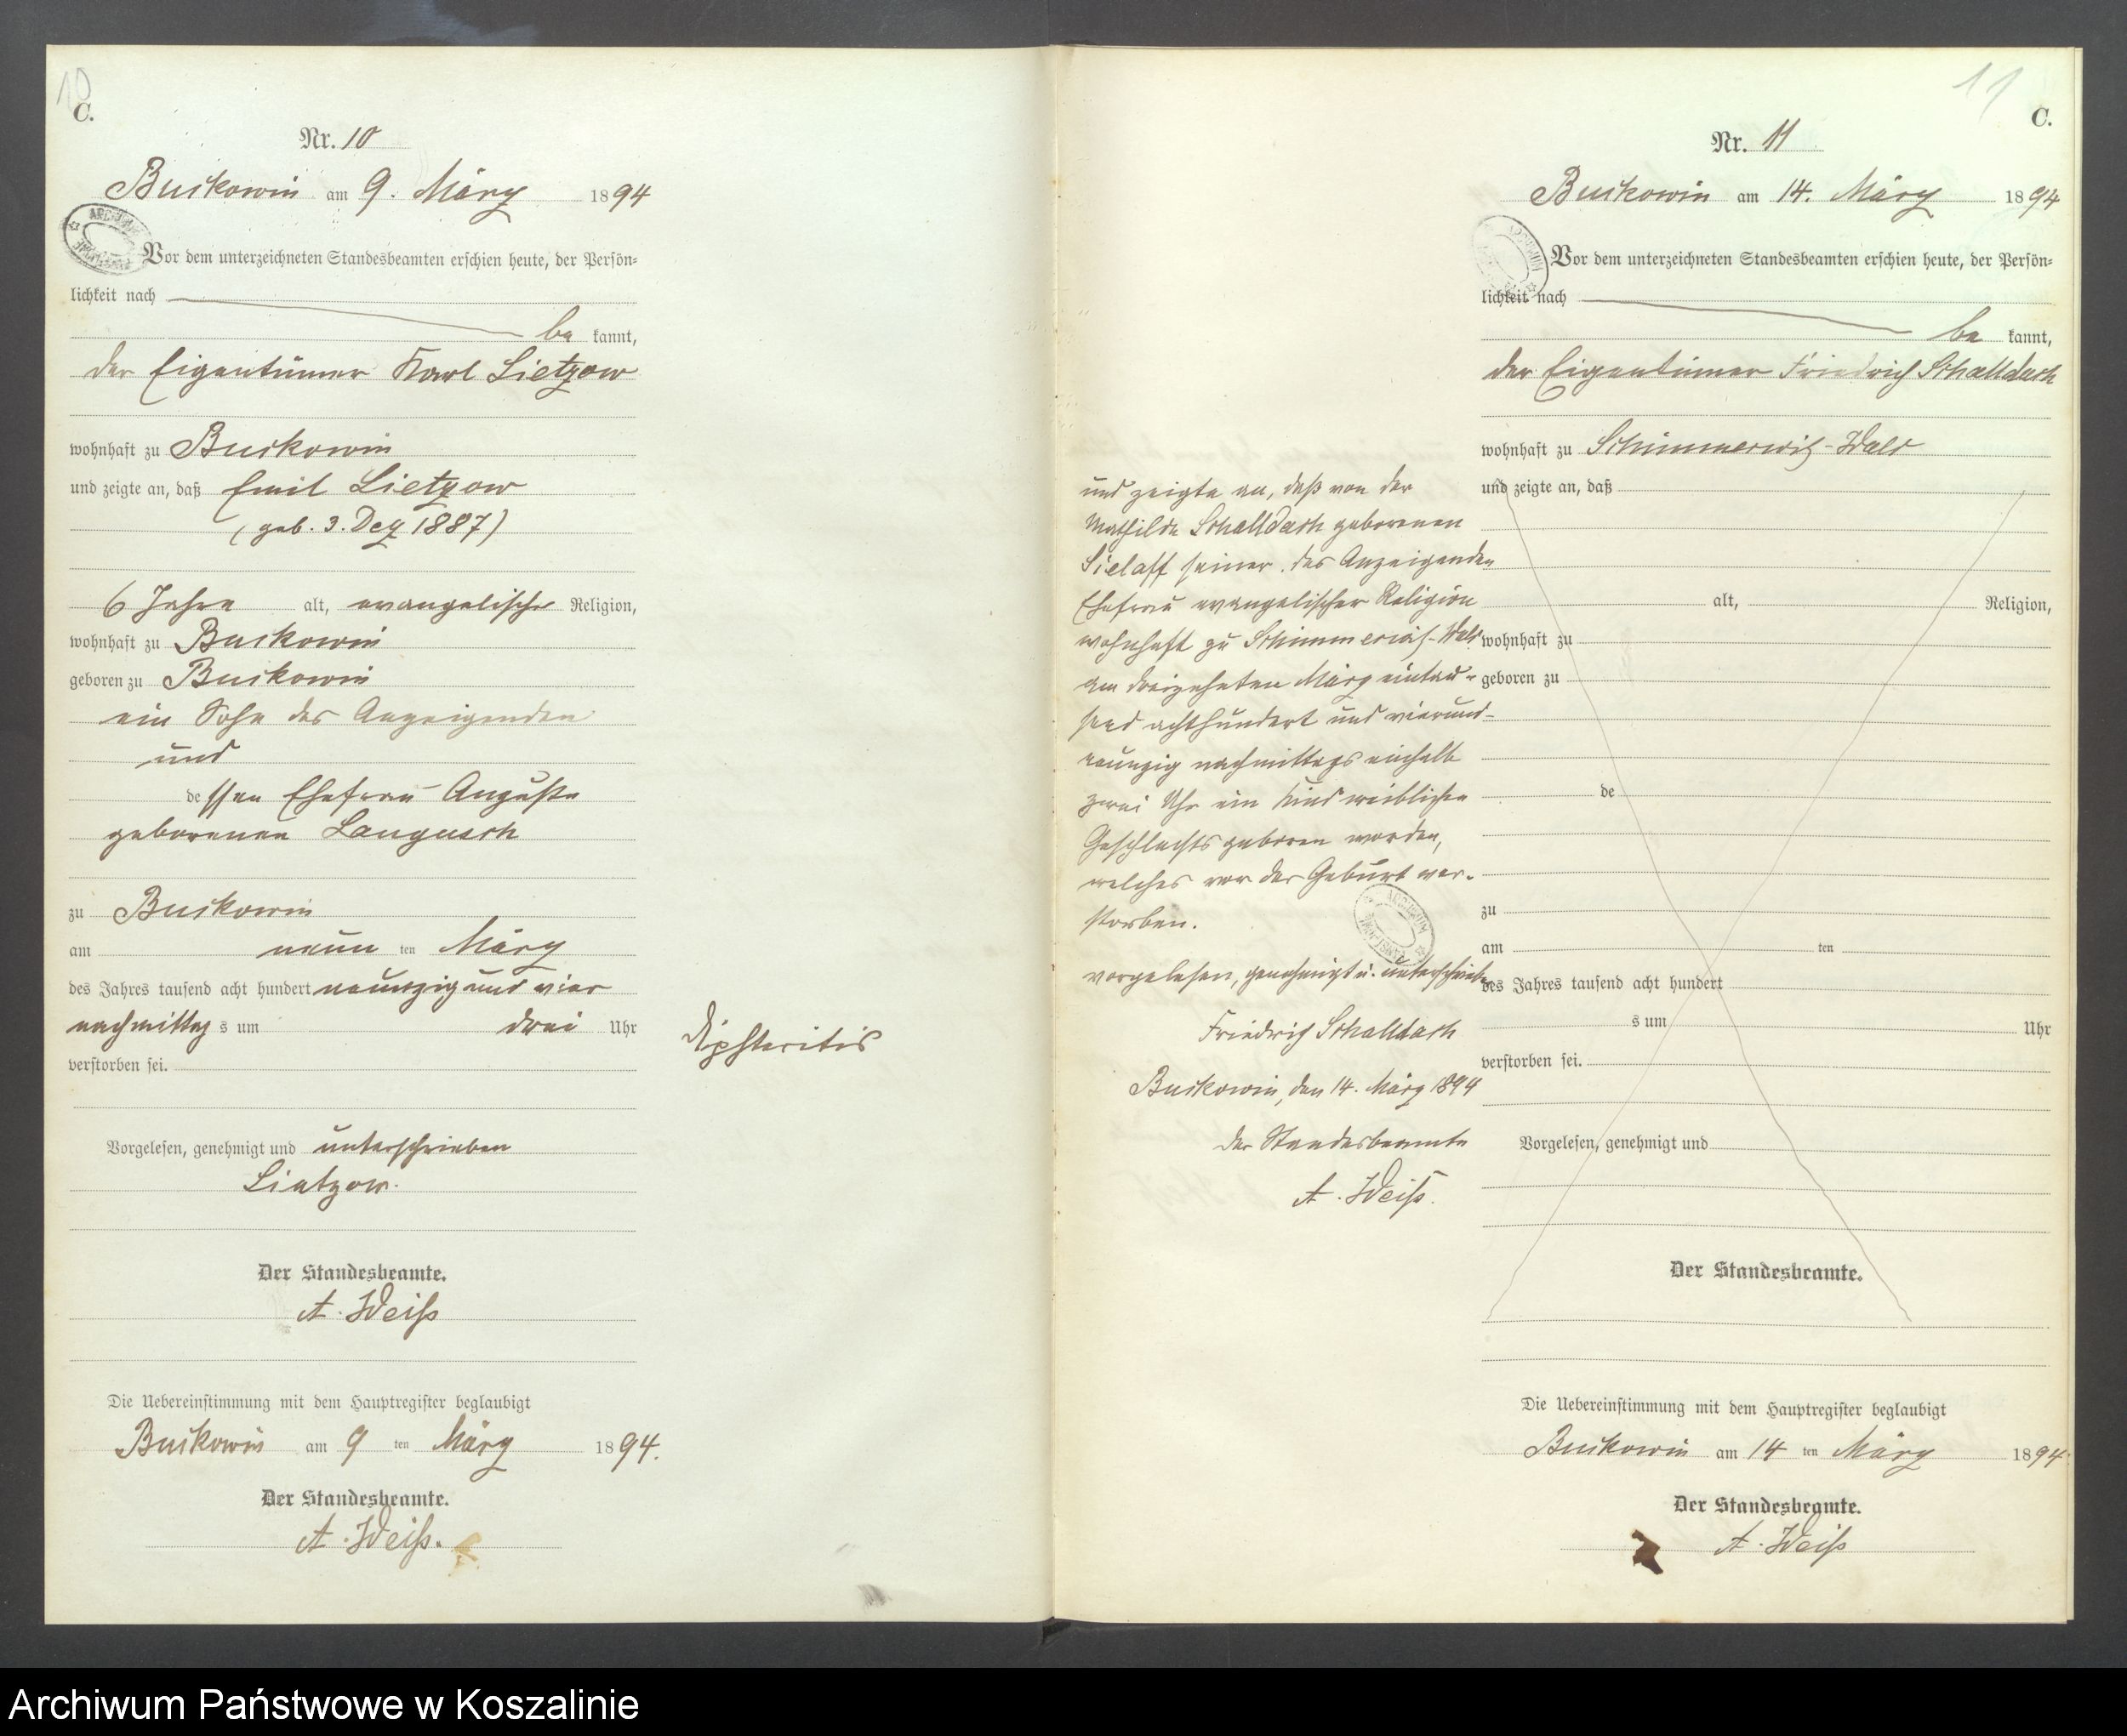 10
C.
Nr. 10
Buckowin am 9. März 1894
Vor dem unterzeichneten Standesbeamten erschien heute, der Persön-
lichkeit nach
be kannt,
der Eigentümer Karl Lietzow
wohnhaft zu Buckowin
und zeigte an, daß Emil Lietzow
(geb. 3. Dez 1887)
6 Jahre alt, evangelischer Religion,
wohnhaft zu Buckowin
geboren zu Buckowin
ein Sohn des Anzeigenden
und
dessen Ehefrau Auguste
geborenen Langusch
zu Buckowin
am neun ten März
des Jahres tausend acht hundert neunzig und vier
nachmittags um drei Uhr
verstorben sei.
Diphteritis
Vorgelesen, genehmigt und unterschrieben
Lietzow.
Der Standesbeamte.
A. Weiß
Die Uebereinstimmung mit dem Hauptregister beglaubigt
Buckowin am 9 ten März 1894.
Der Standesbeamte.
A. Weiß.
11
C.
Nr. 11
Buckowin am 14. März 1894
Vor dem unterzeichneten Standesbeamten erschien heute, der Persön-
lichkeit nach
be kannt,
der Eigentümer Friedrich Schalldach
wohnhaft zu Schimmerwitz-Wald
und zeigte an, daß
alt, Religion,
wohnhaft zu
geboren zu
de
zu
am ten
des Jahres tausend acht hundert
s um Uhr
verstorben sei.
Vorgelesen, genehmigt und
Der Standesbeamte.
und zeigte an, daß von der
Mathilde Schalldach geborenen
Sielaff seiner, des Anzeigenden
Ehefrau evangelischer Religion
wohnhaft zu Schimmerwitz-Wald
am dreizehnten März eintau-
send achthundert und vierund-
neunzig nachmittags einhalb
zwei Uhr ein Kind weiblichen
Geschlechts geboren worden,
welches vor der Geburt ver-
storben.
vorgelesen, genehmigt u. unterschrieben
Friedrich Schalldach
Buckowin, den 14. März 1894
der Standesbeamte
A. Weiß.
Die Uebereinstimmung mit dem Hauptregister beglaubigt
Buckowin am 14 ten März 1894.
Der Standesbeamte.
A. Weiß
Archiwum Państwowe w Koszalinie